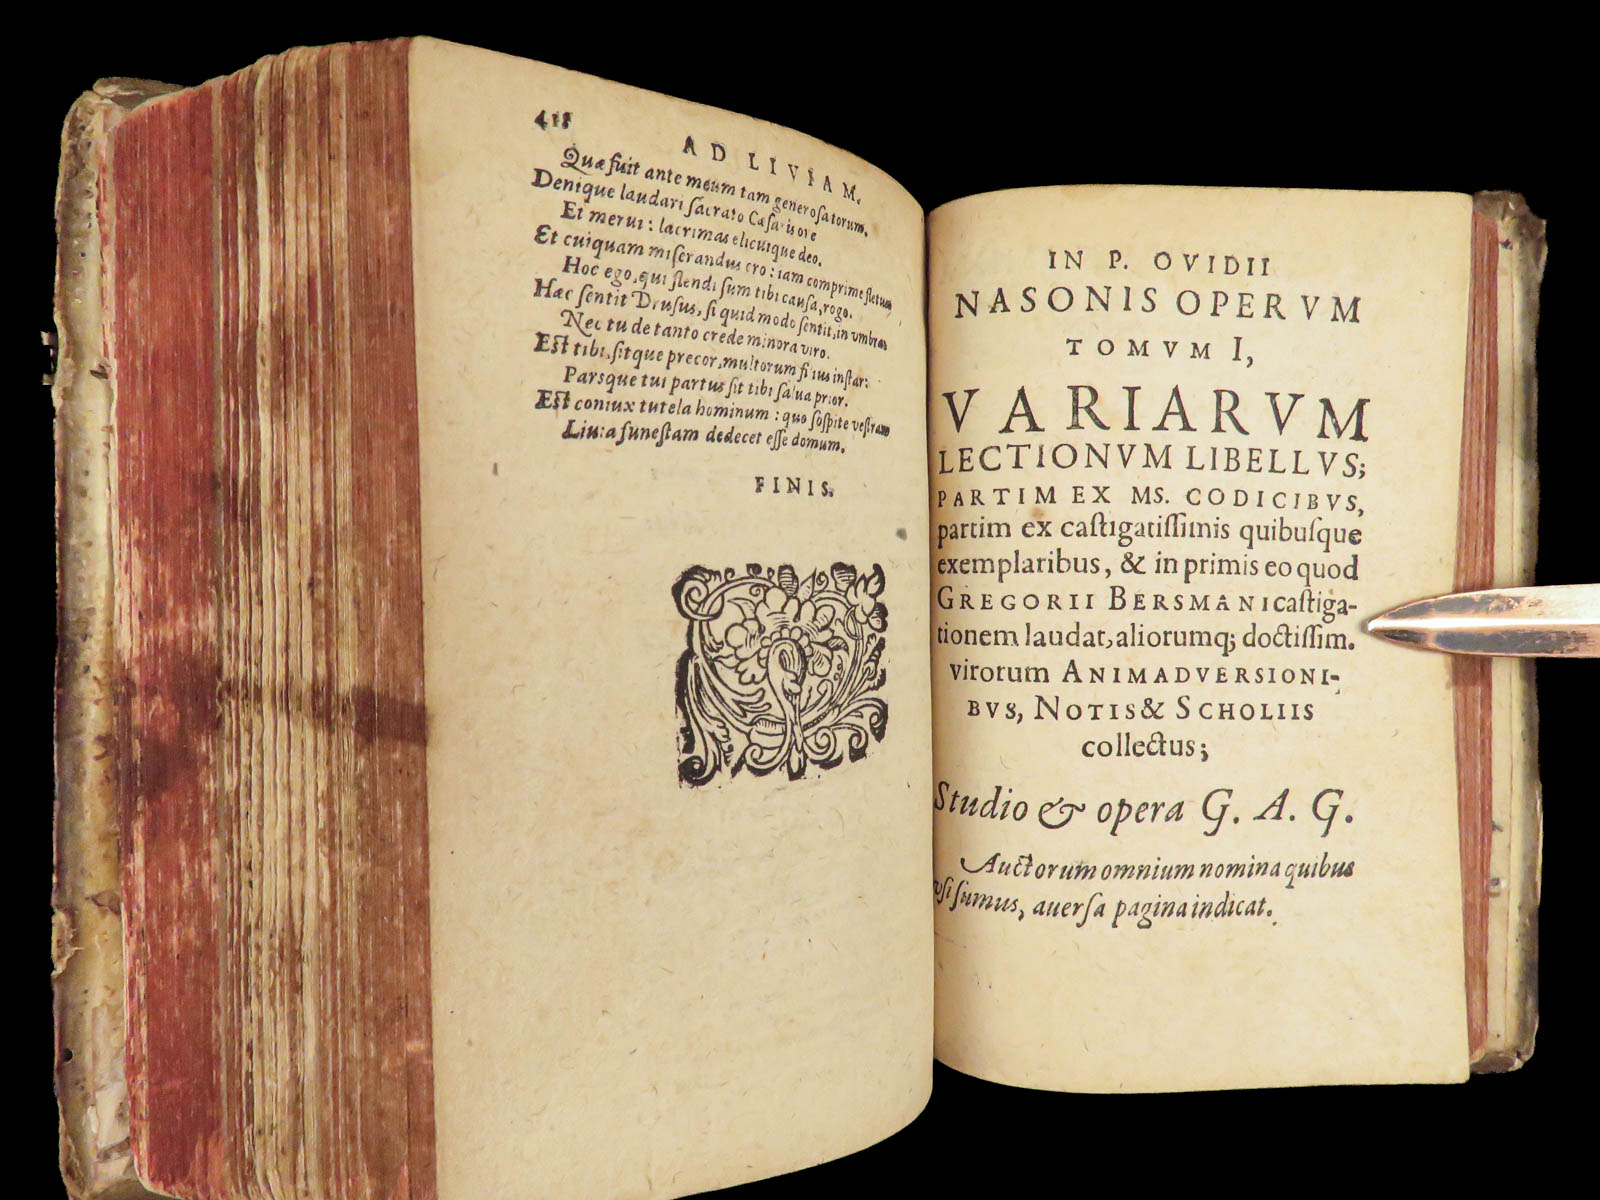 418
AD LIVIAM.
Quæ fuit ante meum tam generosa torum.
Denique laudari ſacrato Cæſaris ore
Et merui: lacrimas elicuique deo.
Et cuiquam miſerandus ero: iam comprime fletum
Hoc ego, qui flendi ſum tibi cauſa, rogo.
Hæc ſentit Druſus, ſi quid modo ſentit, in vmbra
Nec tu de tanto crede minora viro.
Eſt tibi, ſitque precor, multorum filius inſtar:
Parsque tui partus ſit tibi ſalua prior.
Eſt coniux tutela hominum: quo ſoſpite veſtram
Liuia funeſtam dedecet eſſe domum.
FINIS.
IN P. OVIDII
NASONIS OPERVM
TOMVM I,
VARIARVM
LECTIONVM LIBELLVS;
PARTIM EX MS. CODICIBVS,
partim ex caſtigatiſſimis quibuſque
exemplaribus, & in primis eo quod
GREGORII BERSMANI caſtiga-
tionem laudat, aliorumq; doctiſſim.
virorum ANIMADVERSIONI-
BVS, NOTIS & SCHOLIIS
collectus;
Studio & opera G. A. G.
Auctorum omnium nomina quibus
vſi ſumus, auerſa pagina indicat.